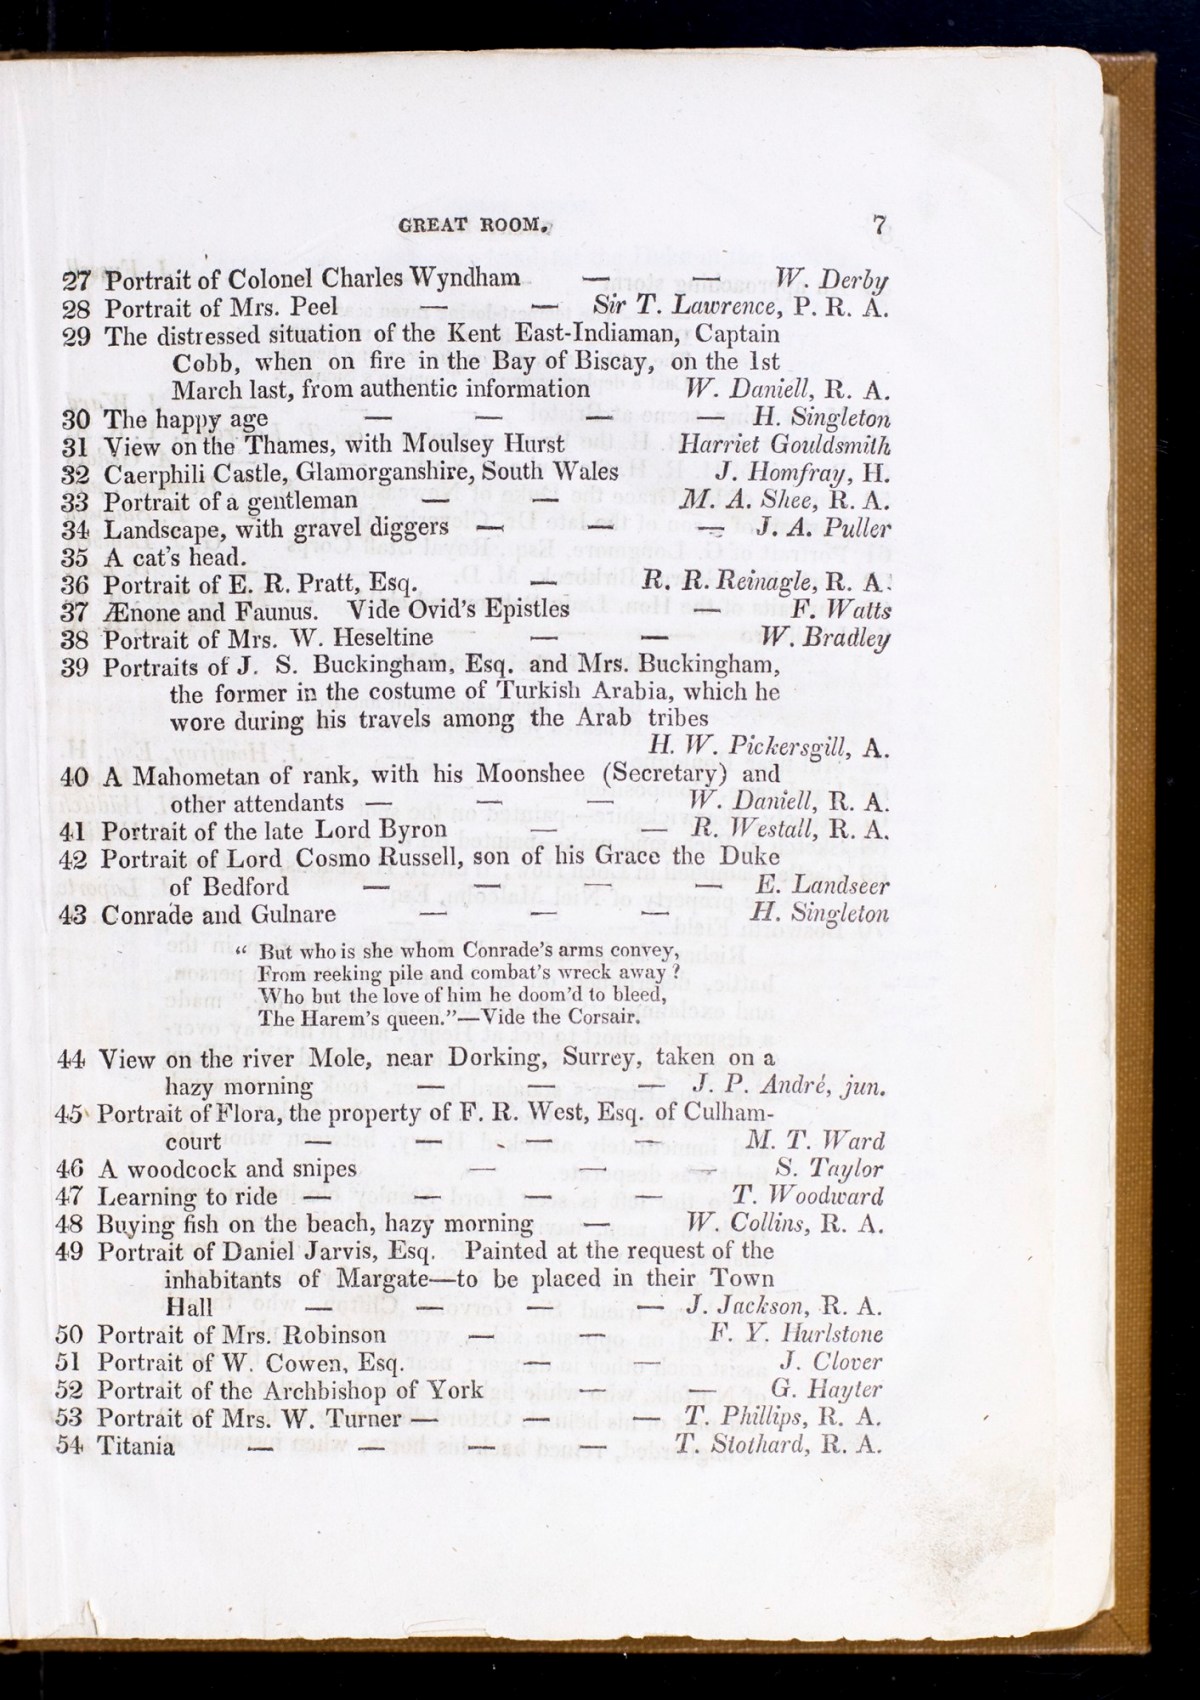 GREAT ROOM. 7
27 Portrait of Colonel Charles Wyndham — — W. Derby
28 Portrait of Mrs. Peel — — Sir T. Lawrence, P. R. A.
29 The distressed situation of the Kent East-Indiaman, Captain
Cobb, when on fire in the Bay of Biscay, on the 1st
March last, from authentic information W. Daniell, R. A.
30 The happy age — — — — H. Singleton
31 View on the Thames, with Moulsey Hurst Harriet Gouldsmith
32 Caerphili Castle, Glamorganshire, South Wales J. Homfray, H.
33 Portrait of a gentleman — — M. A. Shee, R. A.
34 Landscape, with gravel diggers — — — J. A. Puller
35 A cat's head.
36 Portrait of E. R. Pratt, Esq. — R. R. Reinagle, R. A.
37 Ænone and Faunus. Vide Ovid's Epistles — F. Watts
38 Portrait of Mrs. W. Heseltine — — W. Bradley
39 Portraits of J. S. Buckingham, Esq. and Mrs. Buckingham,
the former in the costume of Turkish Arabia, which he
wore during his travels among the Arab tribes
H. W. Pickersgill, A.
40 A Mahometan of rank, with his Moonshee (Secretary) and
other attendants — — — W. Daniell, R. A.
41 Portrait of the late Lord Byron — — R. Westall, R. A.
42 Portrait of Lord Cosmo Russell, son of his Grace the Duke
of Bedford — — — — E. Landseer
43 Conrade and Gulnare — — — H. Singleton
“ But who is she whom Conrade's arms convey,
From reeking pile and combat's wreck away ?
Who but the love of him he doom'd to bleed,
The Harem's queen.”—Vide the Corsair.
44 View on the river Mole, near Dorking, Surrey, taken on a
hazy morning — — — J. P. André, jun.
45 Portrait of Flora, the property of F. R. West, Esq. of Culham-
court — — — — M. T. Ward
46 A woodcock and snipes — — — S. Taylor
47 Learning to ride — — — — T. Woodward
48 Buying fish on the beach, hazy morning — W. Collins, R. A.
49 Portrait of Daniel Jarvis, Esq. Painted at the request of the
inhabitants of Margate—to be placed in their Town
Hall — — — — J. Jackson, R. A.
50 Portrait of Mrs. Robinson — — F. Y. Hurlstone
51 Portrait of W. Cowen, Esq. — — J. Clover
52 Portrait of the Archbishop of York — — G. Hayter
53 Portrait of Mrs. W. Turner — — — T. Phillips, R. A.
54 Titania — — — — T. Stothard, R. A.